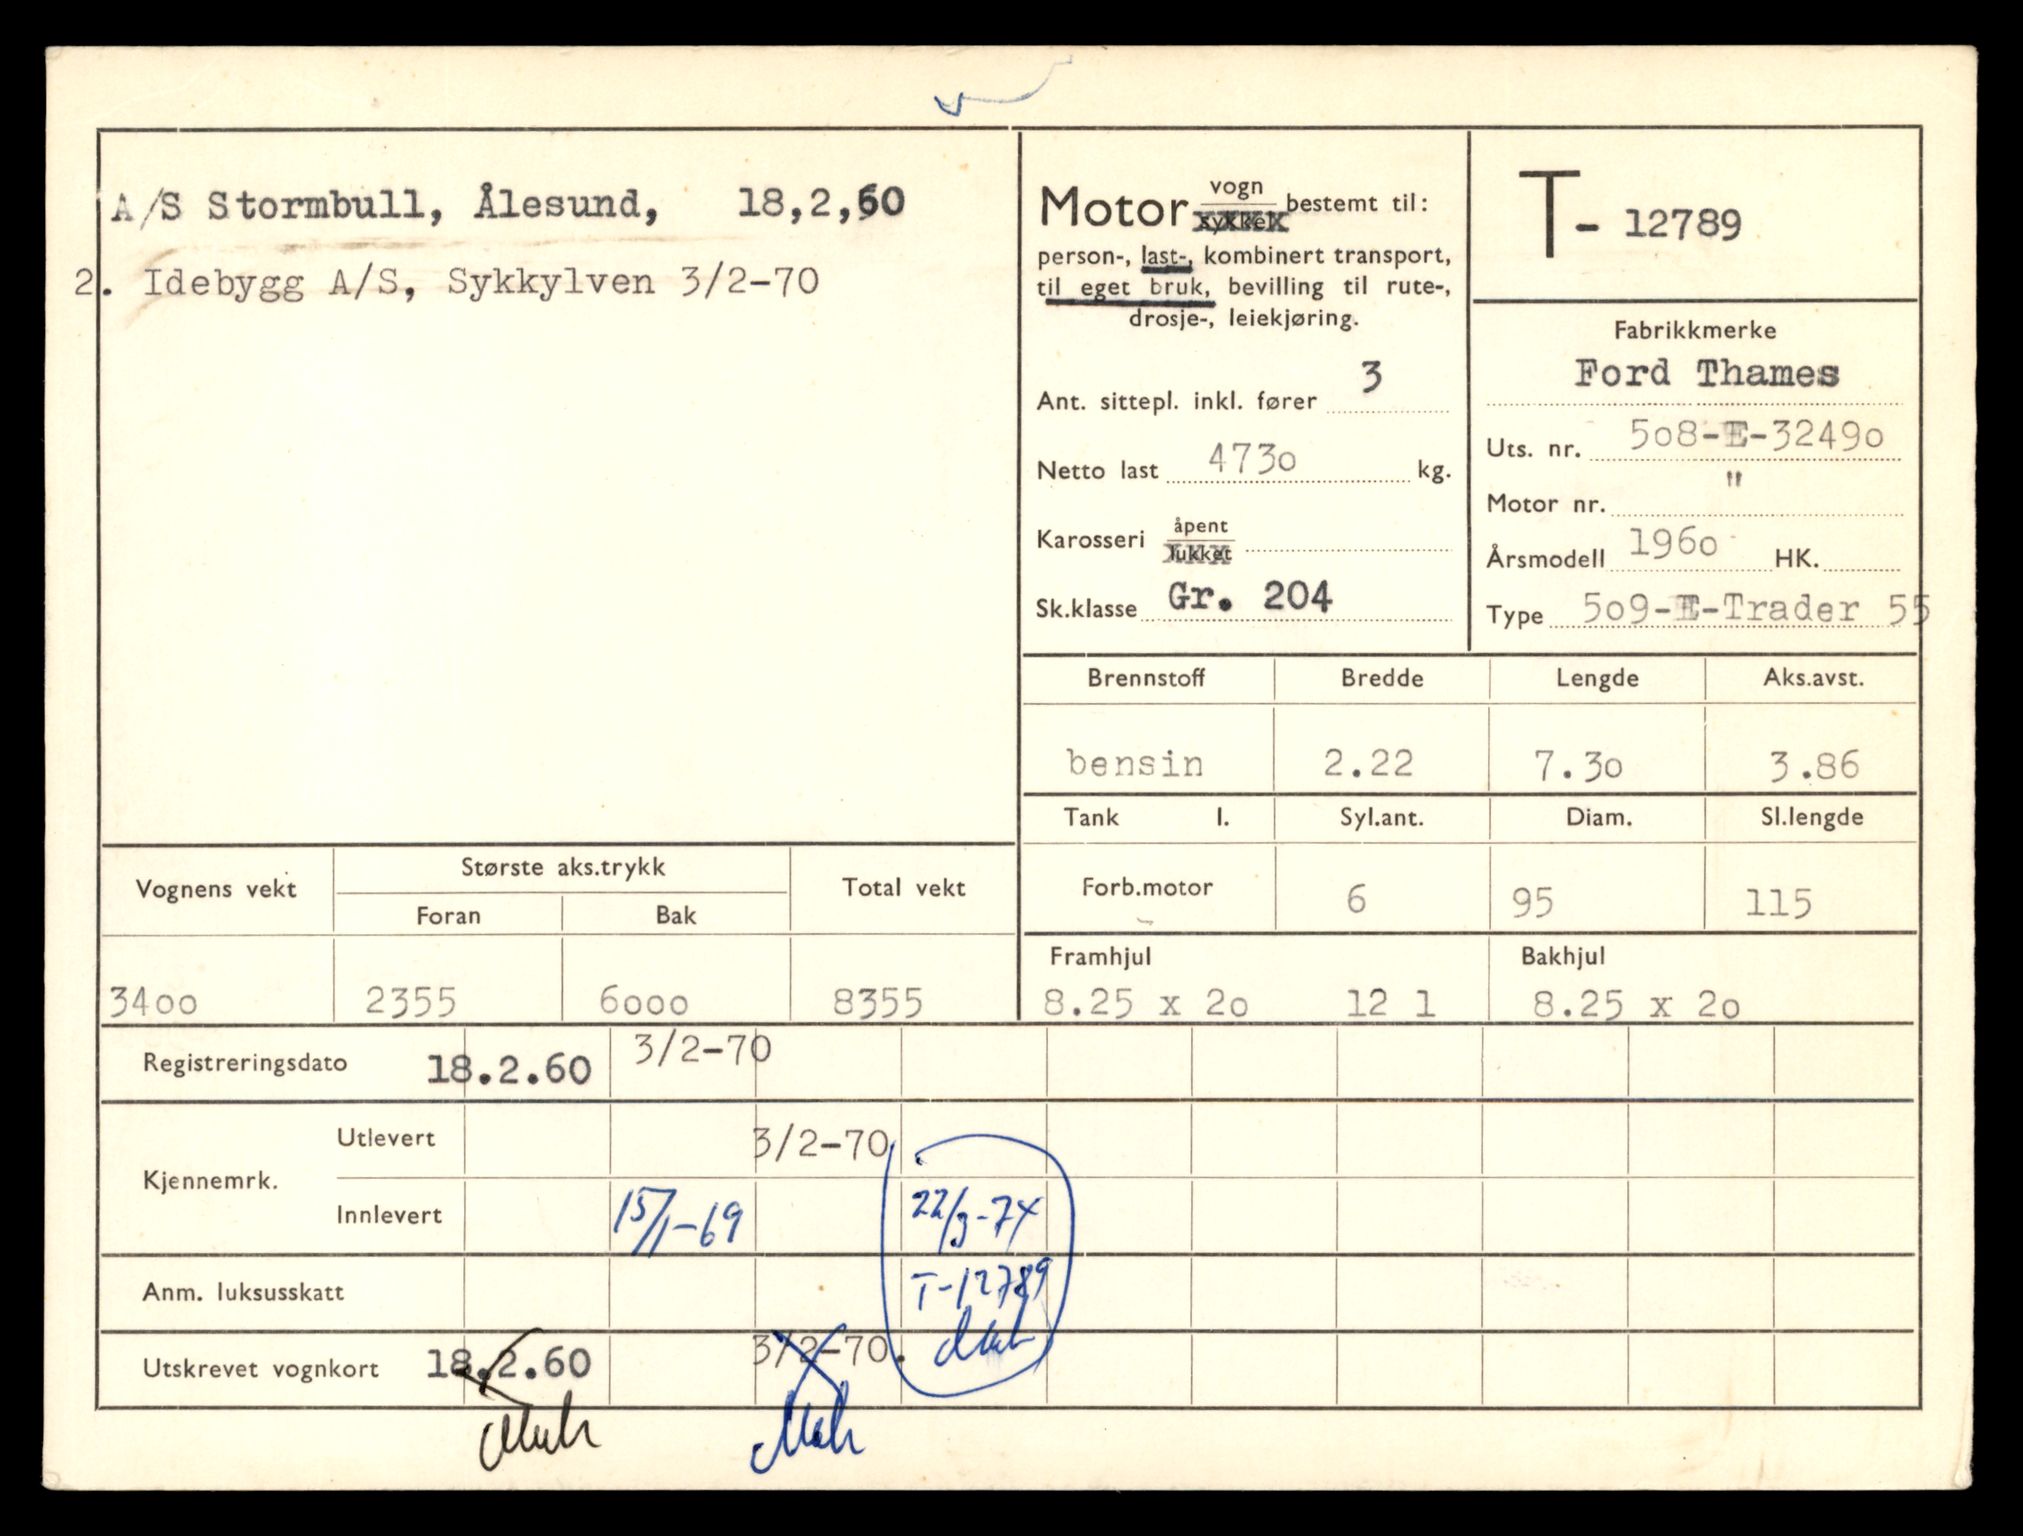 A/S Stormbull, Ålesund, 18,2,60
2. Idebygg A/S, Sykkylven 3/2-70
Motor vogn/sykkel bestemt til:
person-, last-, kombinert transport,
til eget bruk, bevilling til rute-,
drosje-, leiekjøring.
Ant. sittepl. inkl. fører 3
Netto last 473o kg.
Karosseri åpent/lukket
Sk.klasse Gr. 204
T- 12789
Fabrikkmerke
Ford Thames
Uts. nr. 5o8-E-3249o
Motor nr. "
Årsmodell 196o HK.
Type 5o9-E-Trader 55
Brennstoff Bredde Lengde Aks.avst.
bensin 2.22 7.3o 3.86
Tank l. Syl.ant. Diam. Sl.lengde
Forb.motor 6 95 115
Framhjul Bakhjul
8.25 x 2o 12 l 8.25 x 2o
Vognens vekt Største aks.trykk Total vekt
Foran Bak
34oo 2355 6ooo 8355
Registreringsdato 18.2.60 3/2-70
Kjennemrk.
Utlevert 3/2-70
Innlevert 15/1-69 22/3-74
Anm. luksusskatt T-12789
Utskrevet vognkort 18.2.60 3/2-70.